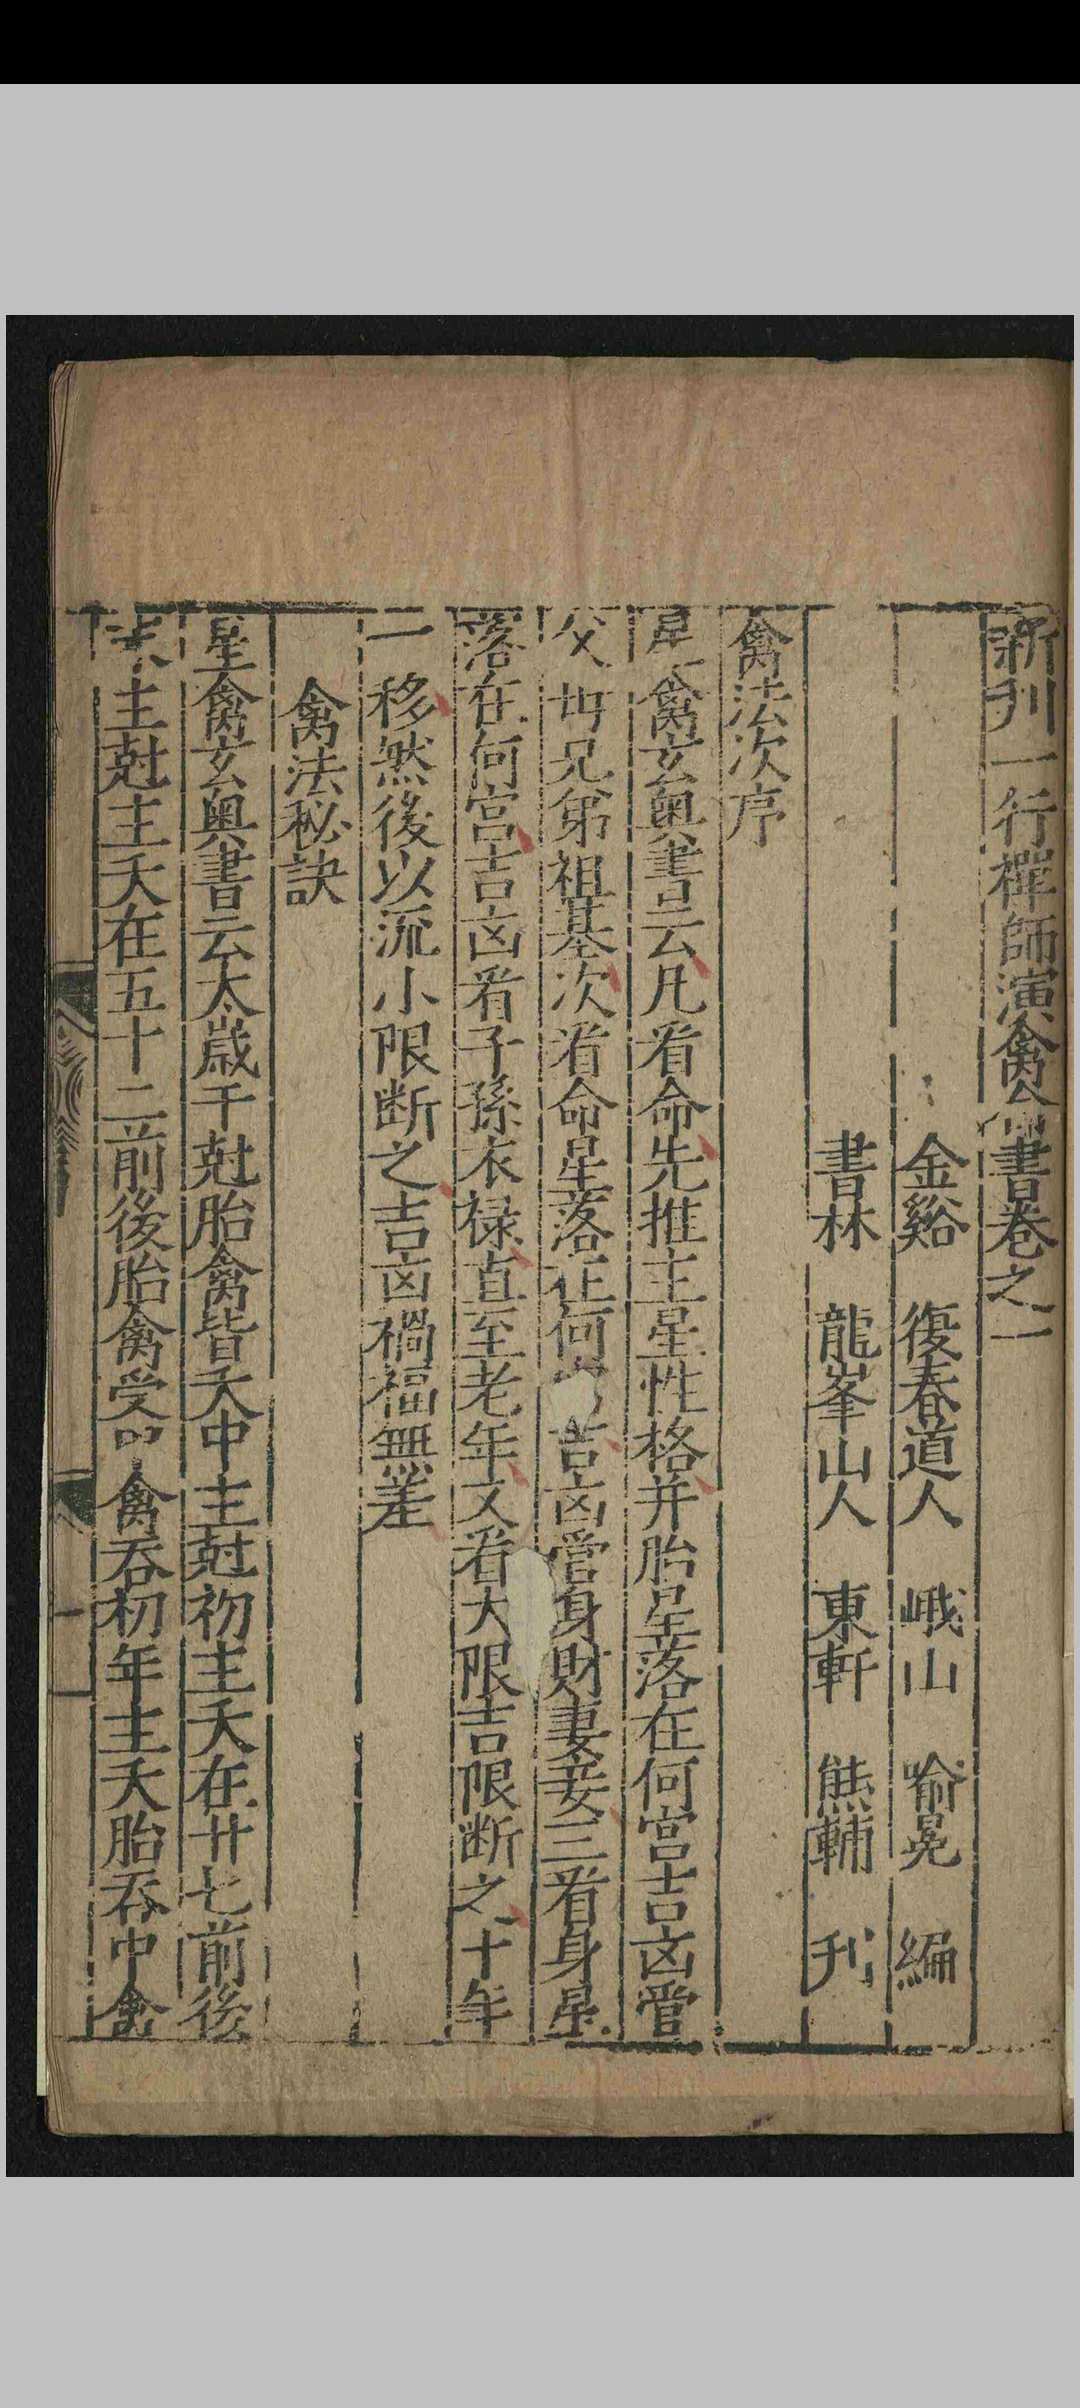 新刋一行禪師演禽命書卷之一
金谿 復春道人 峨山 喻冕 編
書林 龍峯山人 東軒 熊輔 刋
禽法次序
星禽玄奥書云凡看命先推主星性格并胎星落在何宫吉凶管
父母兄弟祖基次看命星落在何吉凶管身財妻妾三看身星
落在何宫吉凶看子孫衣禄直至老年又看大限吉限断之十年
一移然後以流小限断之吉凶禍福無差
禽法秘訣
星禽玄奥書云太歲干尅胎禽皆夭中主尅初主夭在廿七前後
末主尅主夭在五十二前後胎禽受禽吞初年主夭胎吞中禽